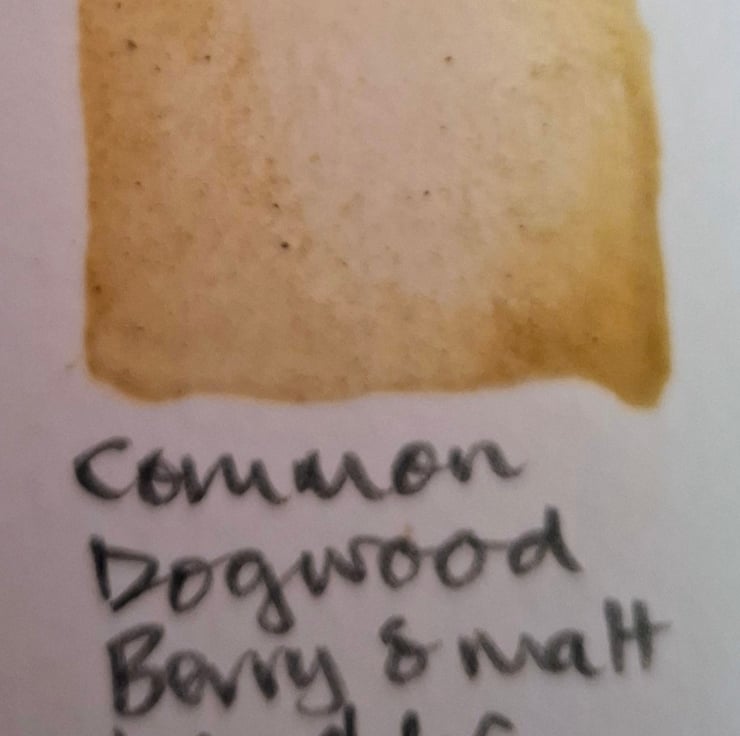 Common
Dogwood
Berry & matt